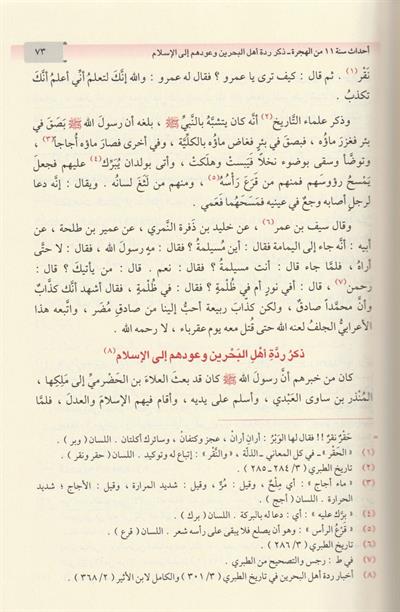 أحداث سنة ١١ من الهجرة - ذكر ردة أهل البحرين وعودهم إلى الإسلام
٧٣
نَقْر(١) . ثم قال : كيف ترى يا عمرو ؟ فقال له عمرو : والله إنَّكَ لتعلمُ أنِّي أعلمُ أنَّكَ
تكذبُ .
وذكر علماء التَّاريخ(٢) أنَّه كان يتشبَّه بالنَّبيِّ ﷺ ، بلغه أن رسولَ الله ﷺ بَصَقَ في
بئر فغزرَ ماؤُه ، فبصقَ في بئرٍ فغاضَ ماؤُه بالكليَّة ، وفي أخرى فصارَ ماؤُه أُجاجاً(٣) ،
وتوضَّأ وسقى بوضوء نخلاً فيَبستْ وهلكتْ ، وأتى بولدان يُبَرِّك(٤) عليهم فجعلَ
يَمسَحُ رؤوسَهم فمنهم من قَرَعَ رَأْسُه(٥) ، ومنهم من لَثَغَ لسانُه . ويقال : إنَّه دعا
لرجلٍ أصابه وجعٌ في عينيه فمَسَحَهُما فَعَمي .
وقال سيف بن عمر(٦) ، عن خليد بن ذفرة النَّمري ، عن عمير بن طلحة ، عن
أبيه : أنَّه جاء إلى اليمامة فقال : أين مُسيلمة ؟ فقال : مهٍ رسول الله ، فقال : لا حتَّى
أراهُ ، فلمَّا جاء قال : أنت مسيلمة ؟ فقال : نعم . قال : من يأتيكَ ؟ قال :
رحمن(٧) ، قال : أفي نورٍ أم في ظُلْمة ؟ فقال : في ظُلْمة ، فقال أشهد أنَّك كذَّابٌ
وأنَّ محمَّداً صادقٌ ، ولكن كذابَ ربيعةَ أحبُّ إلينا من صادقِ مُضَر ، واتَّبعه هذا
الأعرابيُّ الجلفُ لعنه الله حتى قُتل معه يوم عقرباء ، لا رحمه الله .
ذكرُ ردَّةِ أهلِ البَحْرين وعودهم إلى الإسلام(٨)
كان من خبرهم أنَّ رسولَ الله ﷺ كان قد بعثَ العلاءَ بن الحَضْرميِّ إلى مَلِكِها ،
المُنْذر بن ساوى العَبْدي ، وأسلم على يديه ، وأقام فيهم الإسلامَ والعدلَ ، فلمَّا
= حَفْرٌ نقرٌ !! فقال لها الوَبْرُ : أرانِ أرانْ ، عجز وكتفانْ ، وسائرك أكلتان . اللسان ( وبر ) .
(١) « الحَقْر » - في كل المعاني - الذلَّة ، « والنَّقْر » : إتباع له وتوكيد . اللسان ( حقر ونقر ) .
(٢) تاريخ الطبري ( ٣/ ٢٨٤ - ٢٨٥ ) .
(٣) « ماء أجاج » : أي مِلْحٌ ، وقيل : مُرٌّ ، وقيل : شديد المرارة ، وقيل : الأجاج : شديد
الحرارة . اللسان ( أجج ) .
(٤) « برَّك عليه » : أي : دعا له بالبركة . اللسان ( برك ) .
(٥) « قَرَعُ الرأس » : وهو أن يصلع فلا يبقى على رأسه شعر . اللسان ( قرع ) .
(٦) تاريخ الطبري ( ٣/ ٢٨٦ ) .
(٧) في ط : رجس والتصحيح من الطبري .
(٨) أخبار ردة أهل البحرين في تاريخ الطبري ( ٣/ ٣٠١ ) والكامل لابن الأثير ( ٢/ ٣٦٨ ) .